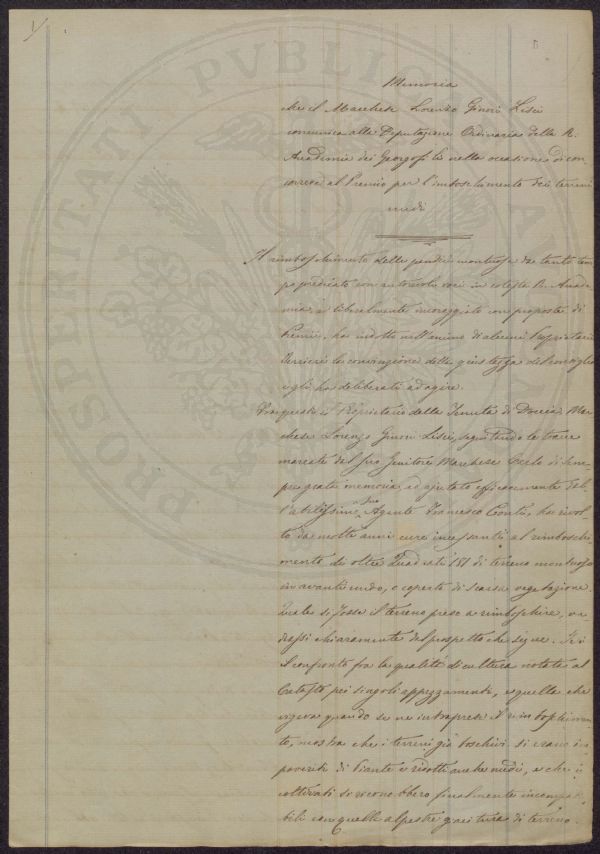 1/
Memoria
che il Marchese Lorenzo Ginori Lisci
comunica alla Deputazione Ordinaria della R.
Accademia dei Georgofili nella occasione di con-
correre al Premio per l'imboschimento dei terreni
nudi
Il rimboschimento delle pendici montuose da tanto tem
po predicato con autorevole voce in cotesta R. Accade
mia, e liberalmente incoraggito con proposte di
Premii, ha indotto nell'animo di alcuni Proprietarii
Terrieri la convinzione della giustezza del consiglio
e gli ha deliberati ad agire.
Fra questi il Proprietario della Tenuta di Doccia Mar
chese Lorenzo Ginori Lisci, seguitando le tracce
marcate dal suo Genitore Marchese Carlo di sem
pre grata memoria, ed ajutato efficacemente dal
l'abilissimo suo Agente Francesco Conti, ha rivol
to da molti anni cure incessanti al rimboschi
mento di oltre Quadrati 181 di terreno montuoso
in avanti nudo, o coperto di scarsa vegetazione.
Quale si fosse il terreno preso a rimboschire, ve
drassi chiaramente dal prospetto che segue.
il confronto fra la qualità di cultura notata al
Catasto pei singoli appezzamenti, e quella che
vigeva quando se ne intraprese il rimboschimen
to, mostra che i terreni già boschivi si erano im
poveriti di piante e ridotti anche nudi, e che i
coltivati si resero finalmente incompati
bili con quella alpestre giacitura di terreno.
PROSPERITATI PUBLICAE AUGENDAE